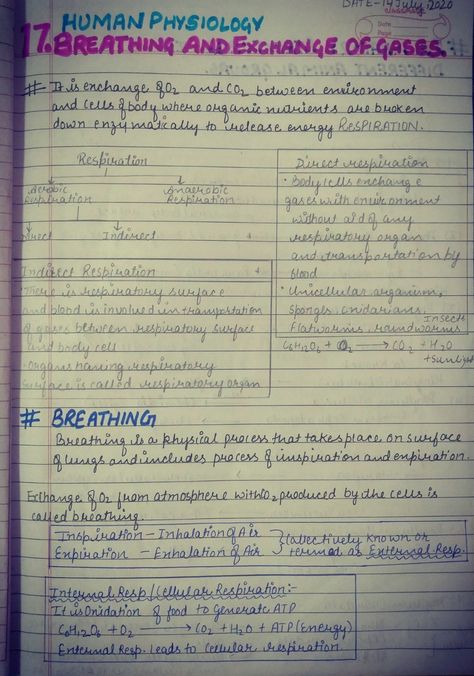 DATE-14 July, 2020
HUMAN PHYSIOLOGY
Date
Page
17. BREATHING AND EXCHANGE OF GASES.
# It is exchange of O2 and CO2 between environment
and cells of body where organic nutrients are broken
down enzymatically to release energy RESPIRATION.
Respiration
Aerobic Respiration
Anaerobic Respiration
Direct
Indirect
Direct respiration
• Body cells exchange
gases with environment
without aid of any
respiratory organ
and transportation by
blood
• Unicellular organism,
sponges, cnidarians,
Insects
flatworms, roundworms
C6H12O6 + O2 → CO2 + H2O
+ Sunlight
Indirect Respiration
• There is respiratory surface
and blood is involved in transportation
of gases between respiratory surface
and body cell
• organs having respiratory
surface is called respiratory organ
# BREATHING
Breathing is a physical process that takes place on surface
of lungs and includes process of inspiration and expiration.
Exchange of O2 from atmosphere with CO2 produced by the cells is
called breathing.
Inspiration - Inhalation of Air
Expiration - Exhalation of Air
} Collectively known or
termed as External Resp.
Internal Resp/Cellular Respiration:-
It is Oxidation of food to Generate ATP
C6H12O6 + O2 → CO2 + H2O + ATP (Energy)
External Resp. leads to Cellular respiration.